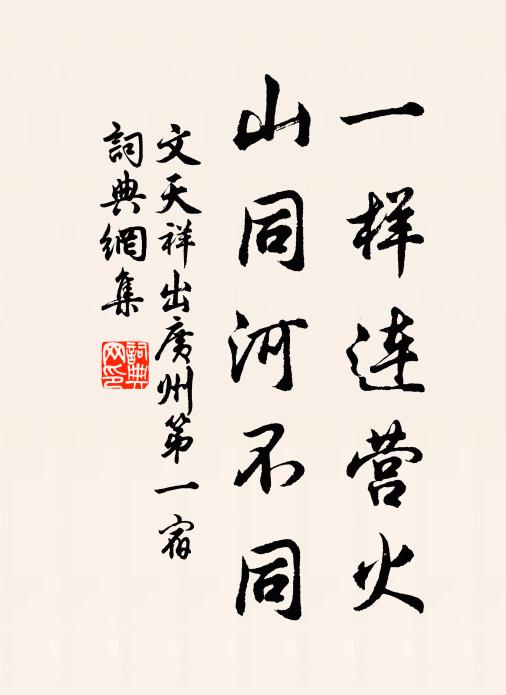 一样连营火
山同河不同
文天祥出廣州第一宿
詞典網集
詞典网印